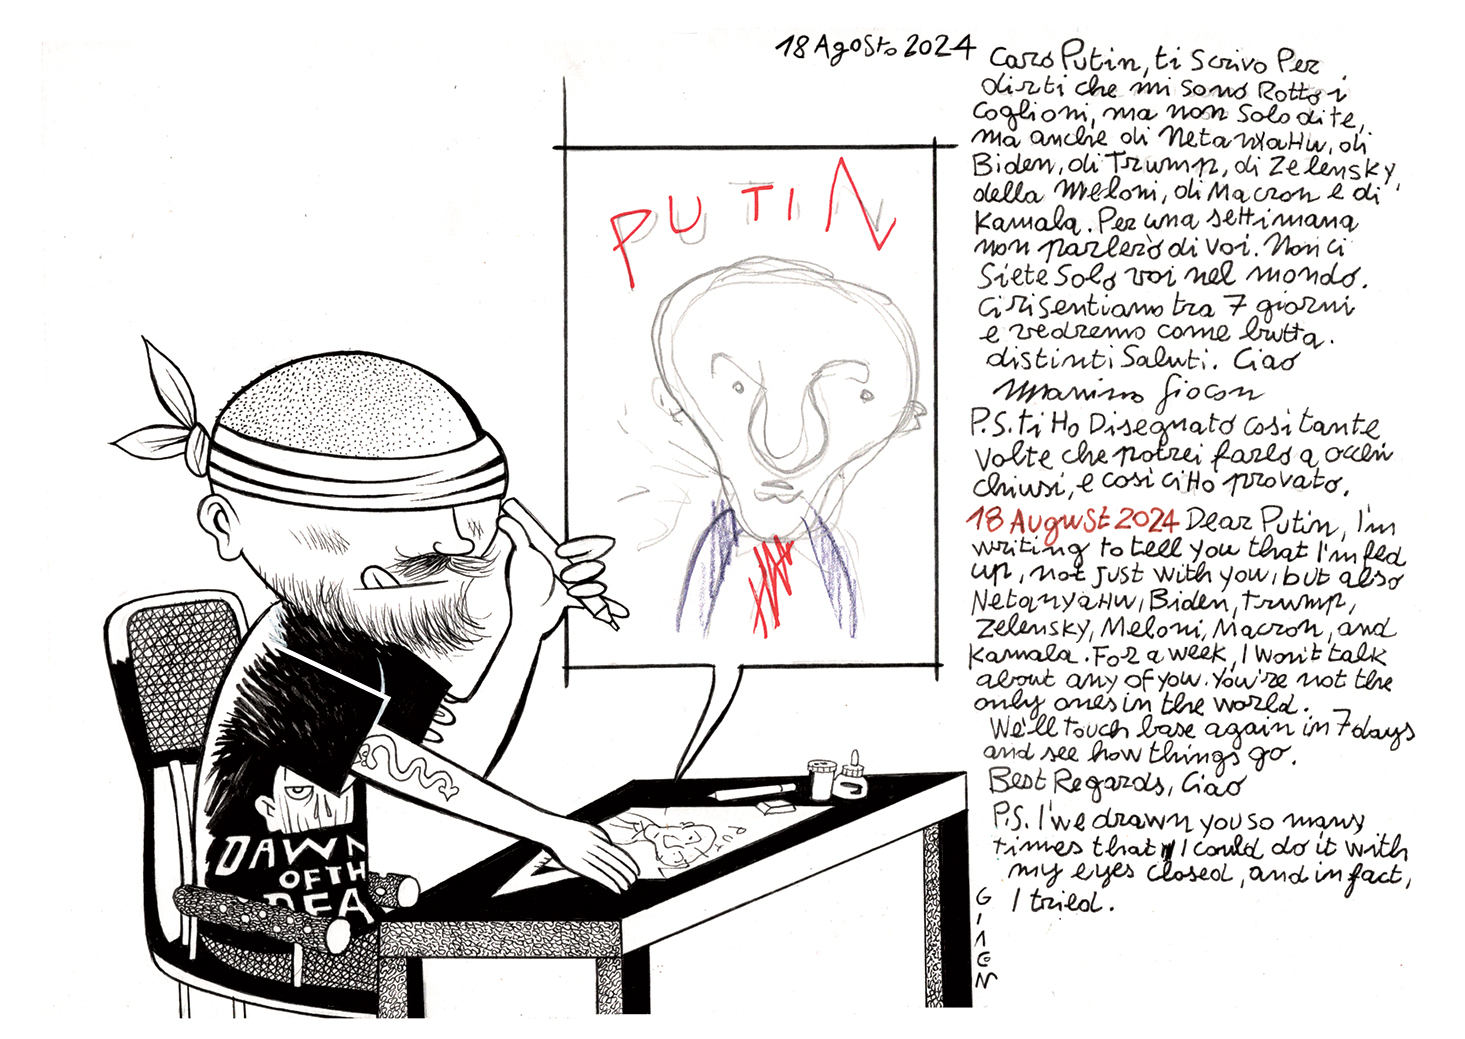 18 Agosto 2024
Caro Putin, ti scrivo Per
dirti che mi sono Rotto i
Coglioni, ma non solo di te,
ma anche di NetanYaHu, di
Biden, di Trump, di Zelensky,
della Meloni, di Macron e di
Kamala. Per una settimana
non parlerò di voi. Non ci
siete solo voi nel mondo.
Ci risentiamo tra 7 giorni
e vedremo come butta.
distinti Saluti. Ciao
Marino Giocon
P.S. ti Ho Disegnato così tante
volte che potrei farlo a occhi
chiusi, e così ci Ho provato.
18 August 2024 Dear Putin, I'm
writing to tell you that I'm fed
up, not just with you, but also
NetanYaHu, Biden, Trump,
Zelensky, Meloni, Macron, and
Kamala. For a week, I won't talk
about any of you. You're not the
only ones in the world.
We'll touch base again in 7 days
and see how things go.
Best Regards, Ciao
P.S. I've drawn you so many
times that I could do it with
my eyes closed, and in fact,
I tried.
PUTIN
DAWN
OF TH
DEA